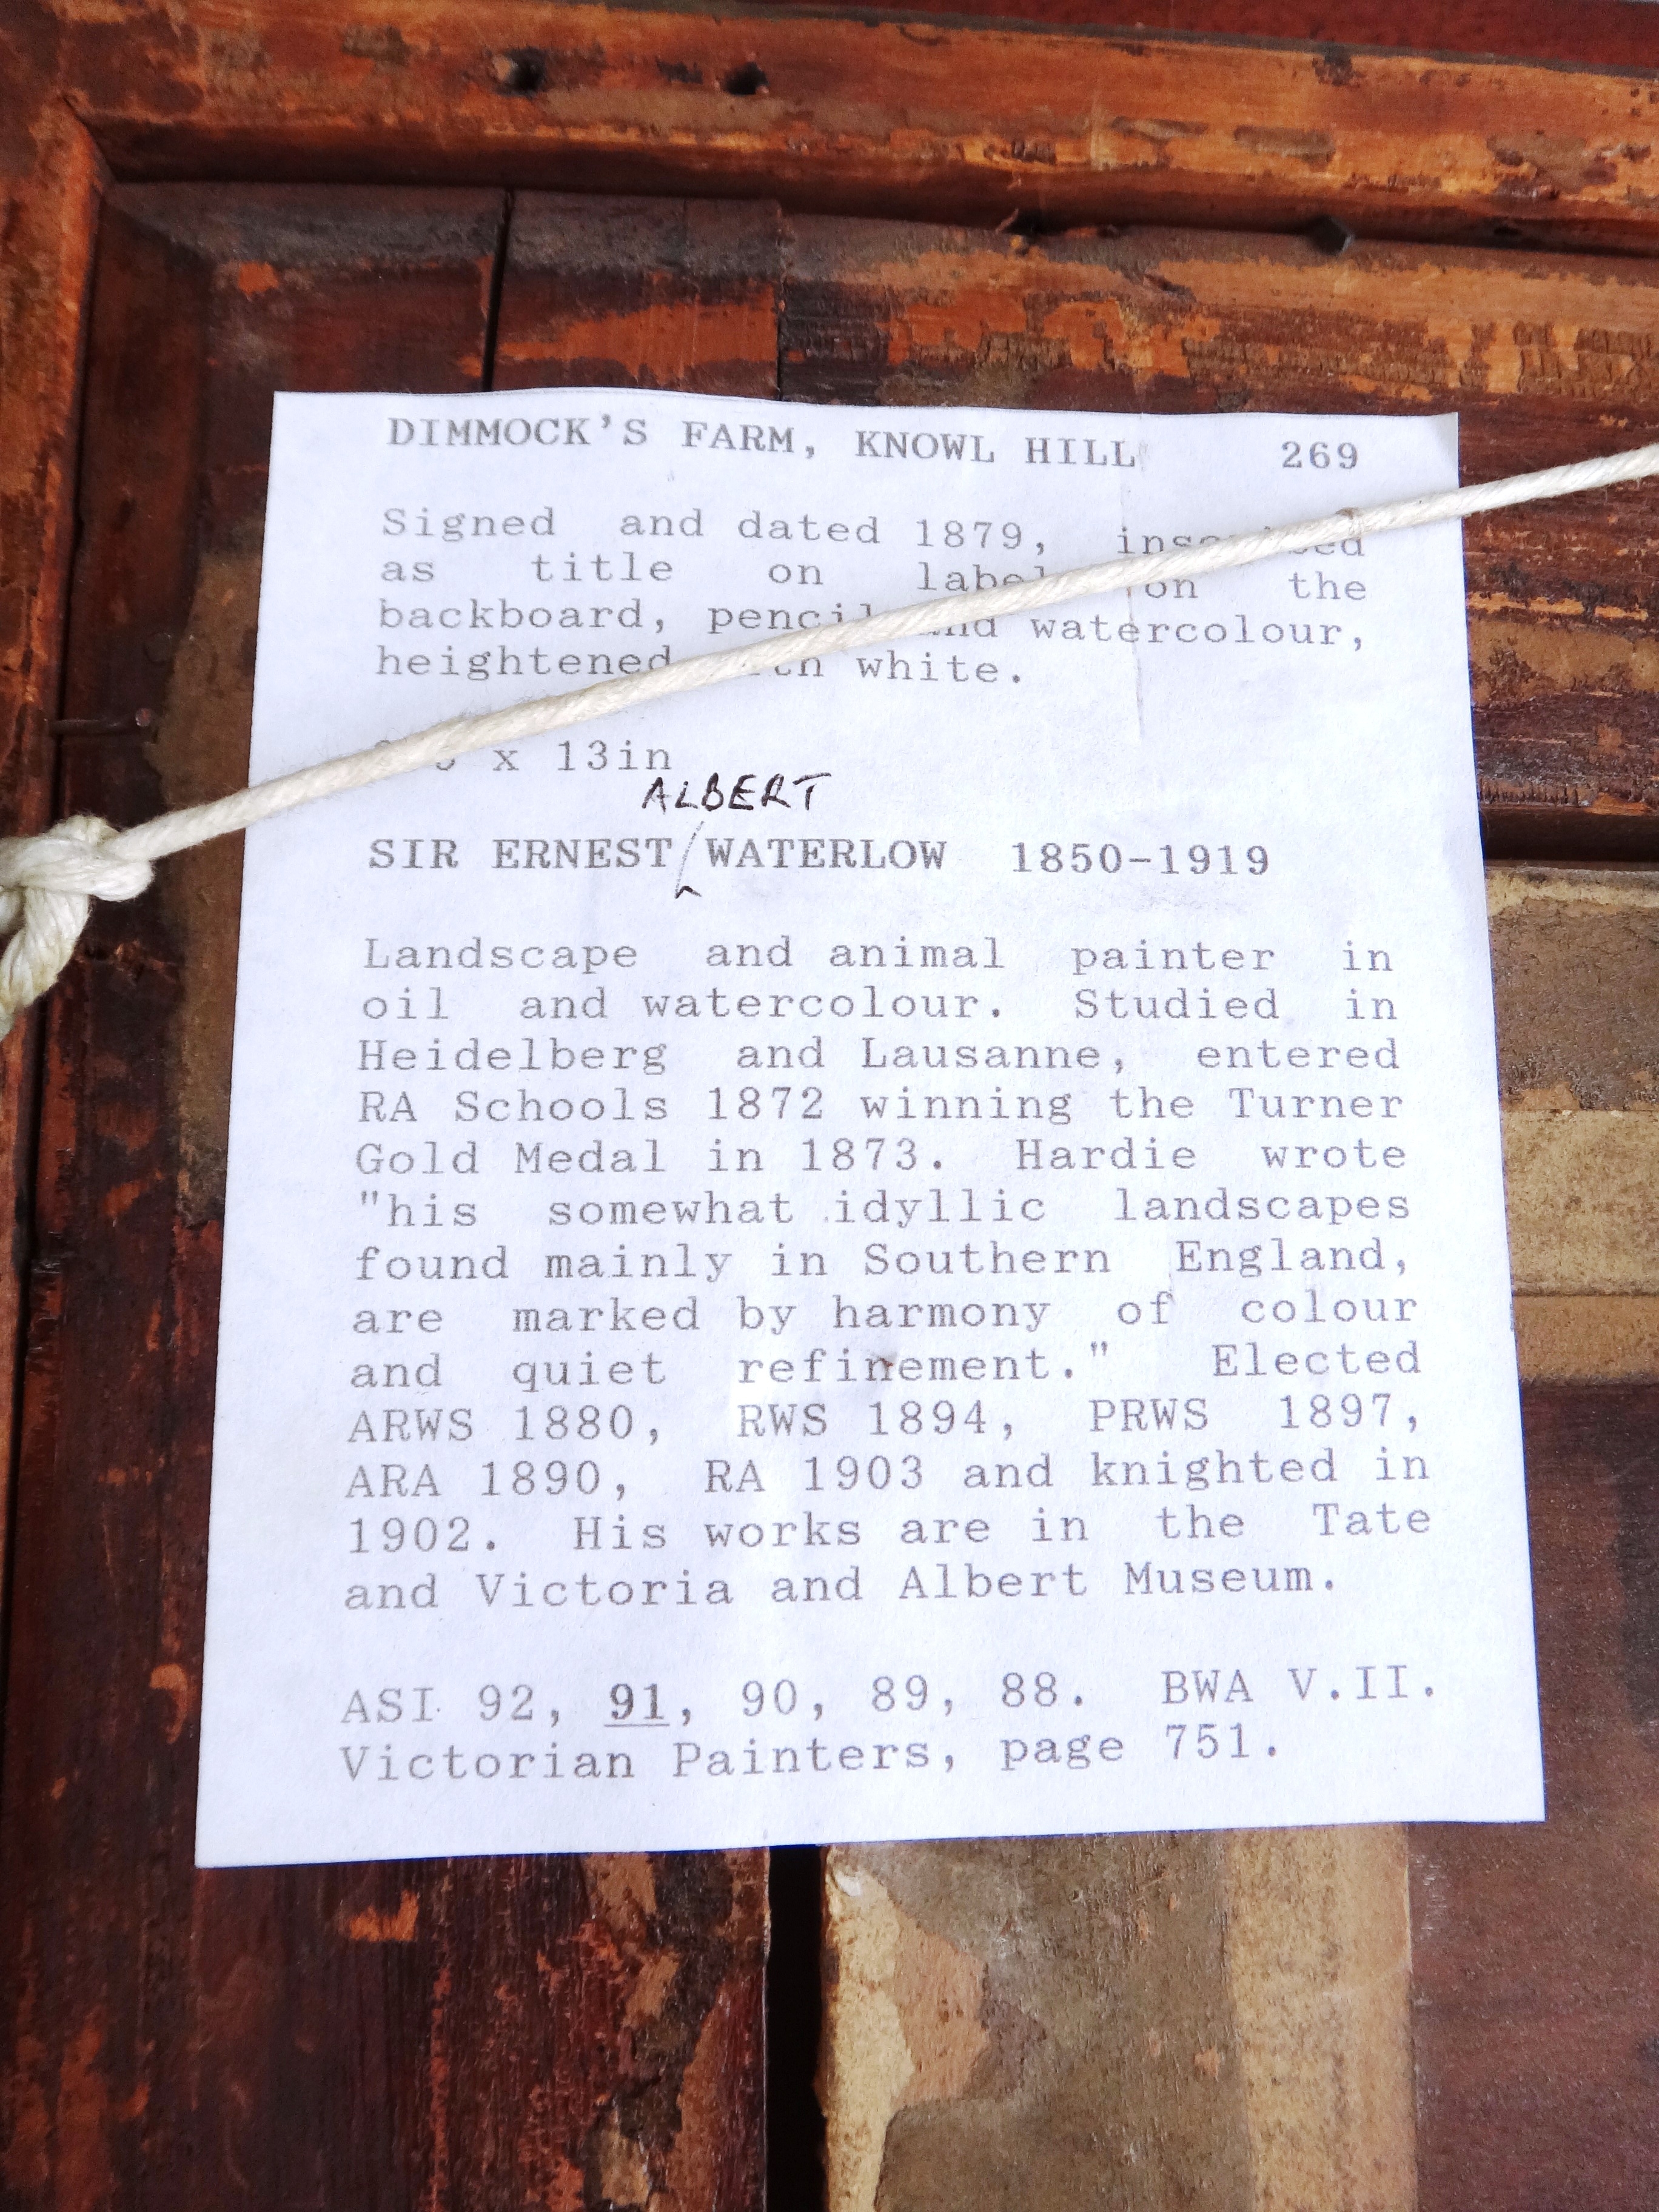 DIMMOCK'S FARM, KNOWL HILL 269
Signed and dated 1879, inscribed
as title on label on the
backboard, pencil and watercolour,
heightened with white.
x 13in
ALBERT
SIR ERNEST WATERLOW 1850-1919
Landscape and animal painter in
oil and watercolour. Studied in
Heidelberg and Lausanne, entered
RA Schools 1872 winning the Turner
Gold Medal in 1873. Hardie wrote
"his somewhat idyllic landscapes
found mainly in Southern England,
are marked by harmony of colour
and quiet refinement." Elected
ARWS 1880, RWS 1894, PRWS 1897,
ARA 1890, RA 1903 and knighted in
1902. His works are in the Tate
and Victoria and Albert Museum.
ASI 92, 91, 90, 89, 88. BWA V.II.
Victorian Painters, page 751.